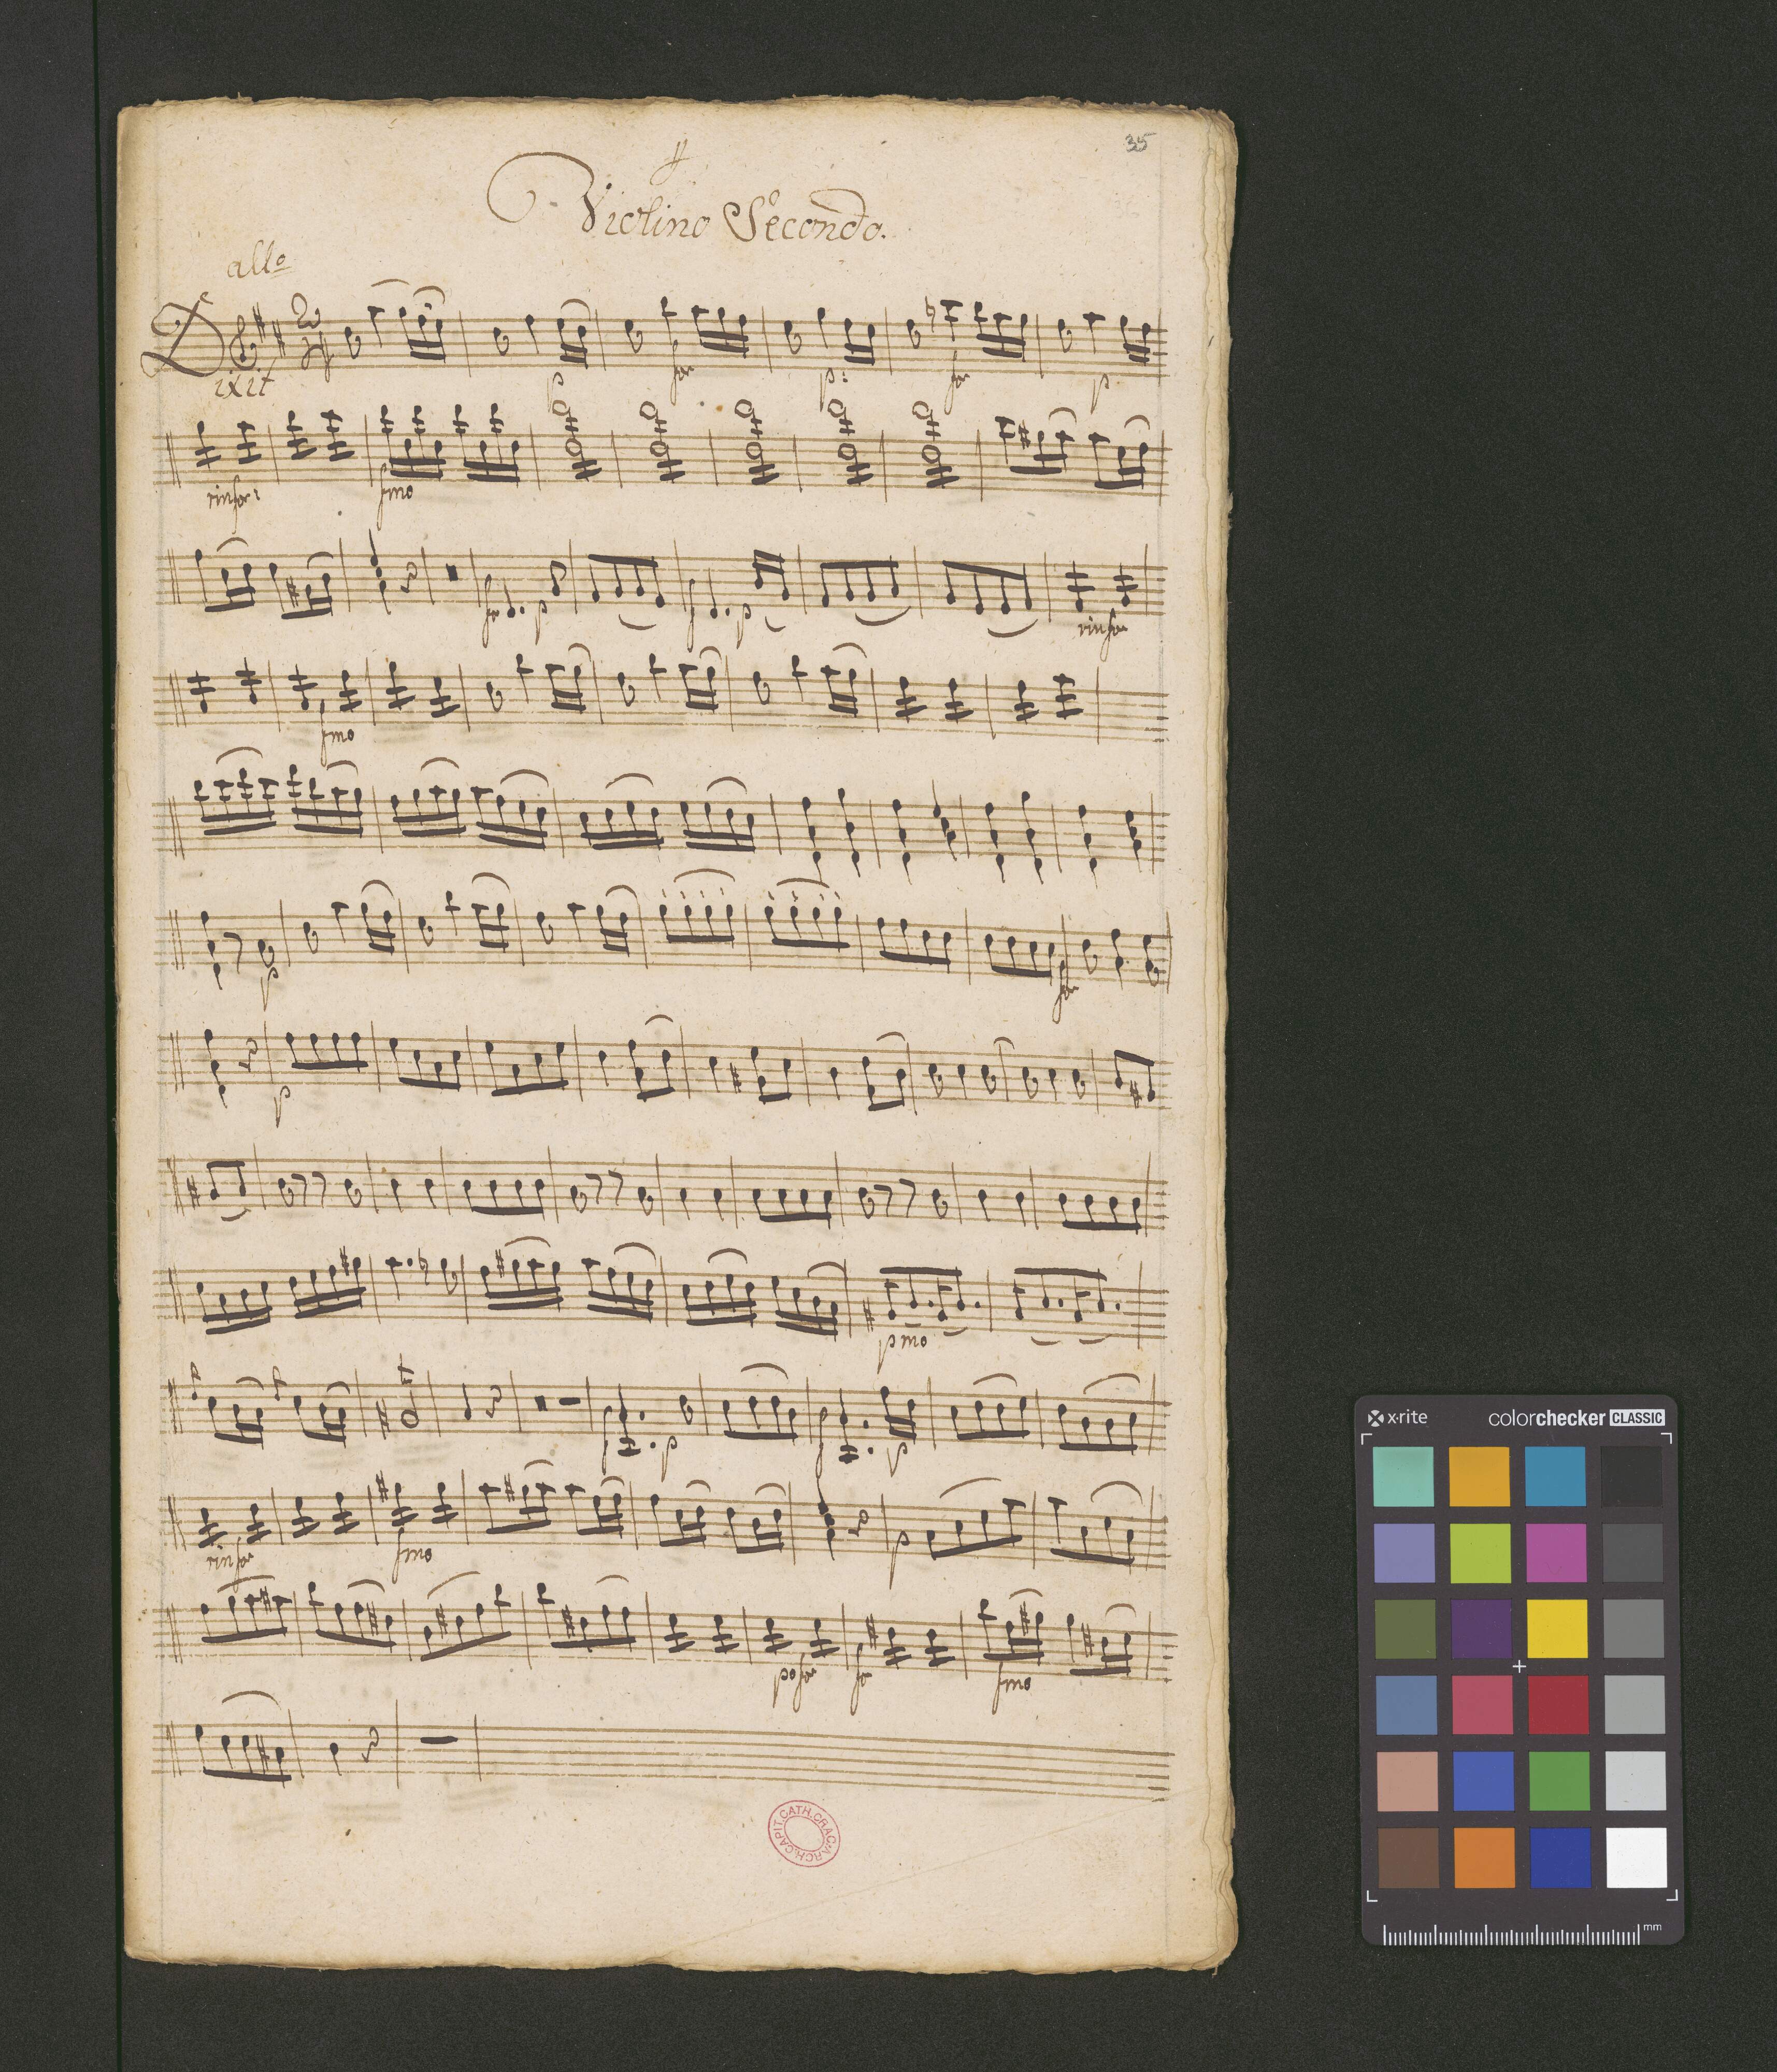 35
Violino Secondo.
allo
Dixit
2
4
p
for
p:
for
p
rinfor:
fmo
for
p
f
p
rinfor
fmo
p
for
p
pmo
f
p
f
p
rinfor
fmo
p
pofor
for
fmo
ARCH.CAPIT.CATH.CRAC.
x·rite
colorchecker CLASSIC
mm